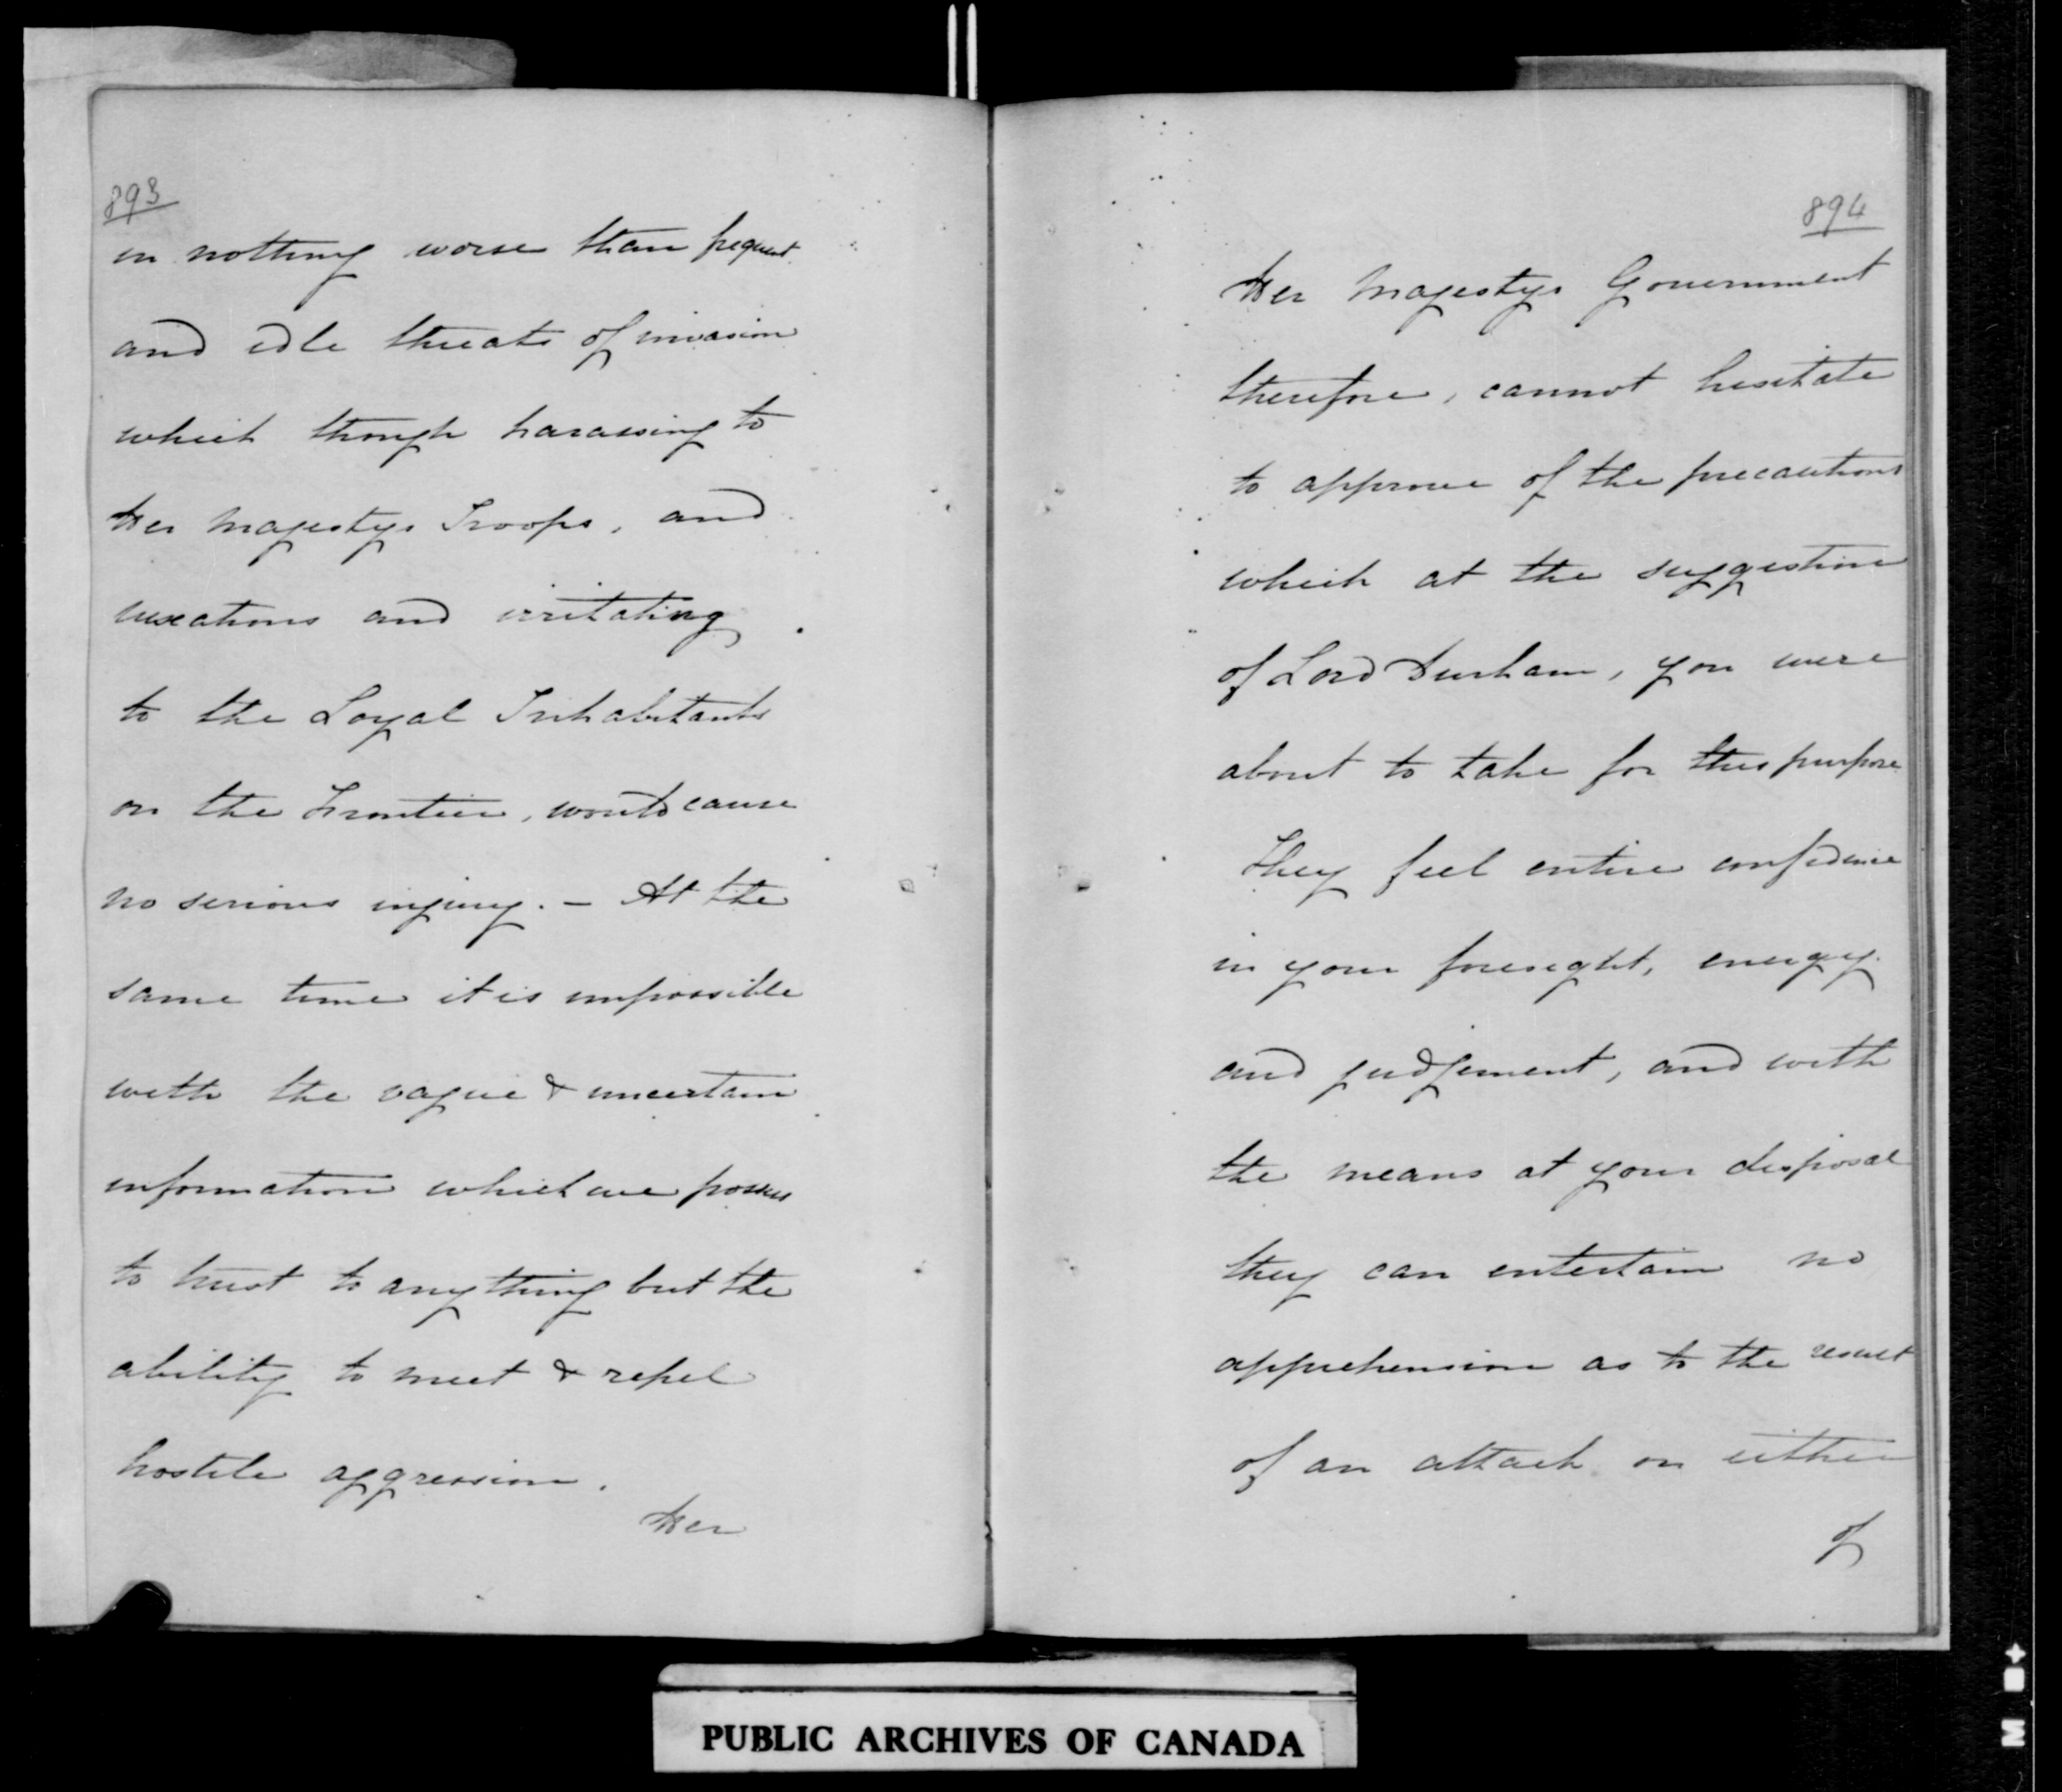 893
in nothing worse than frequent
and idle threats of invasion
which though harassing to
Her Majestys Troops, and
vexatious and irritating
to the Loyal Inhabitants
on the Frontier, would cause
no serious injury. - At the
same time it is impossible
with the vague & uncertain
information which we possess
to trust to anything but the
ability to meet & repel
hostile aggression.
Her
894
Her Majestys Government
therefore, cannot hesitate
to approve of the precautions
which at the suggestion
of Lord Durham, you were
about to take for this purpose
They feel entire confidence
in your foresight, energy
and judgement, and with
the means at your disposal
they can entertain no
apprehension as to the result
of an attack on either
of
PUBLIC ARCHIVES OF CANADA
M